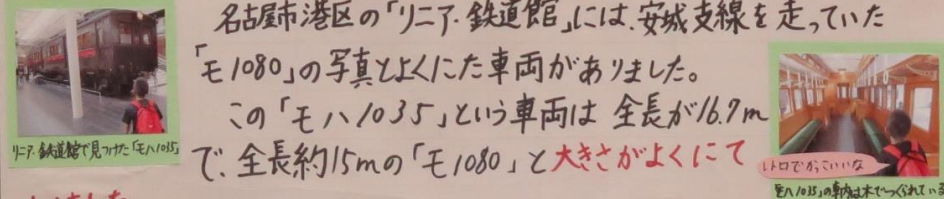 名古屋市港区の「リニア・鉄道館」には、安城支線を走っていた
「モ1080」の写真とよくにた車両がありました。
この「モハ1035」という車両は 全長が16.7m
で、全長約15mの「モ1080」と大きさがよくにて
リニア・鉄道館で見つけた「モハ1035」
レトロでかっこいいな
「モハ1035」の車内は木でつくられている